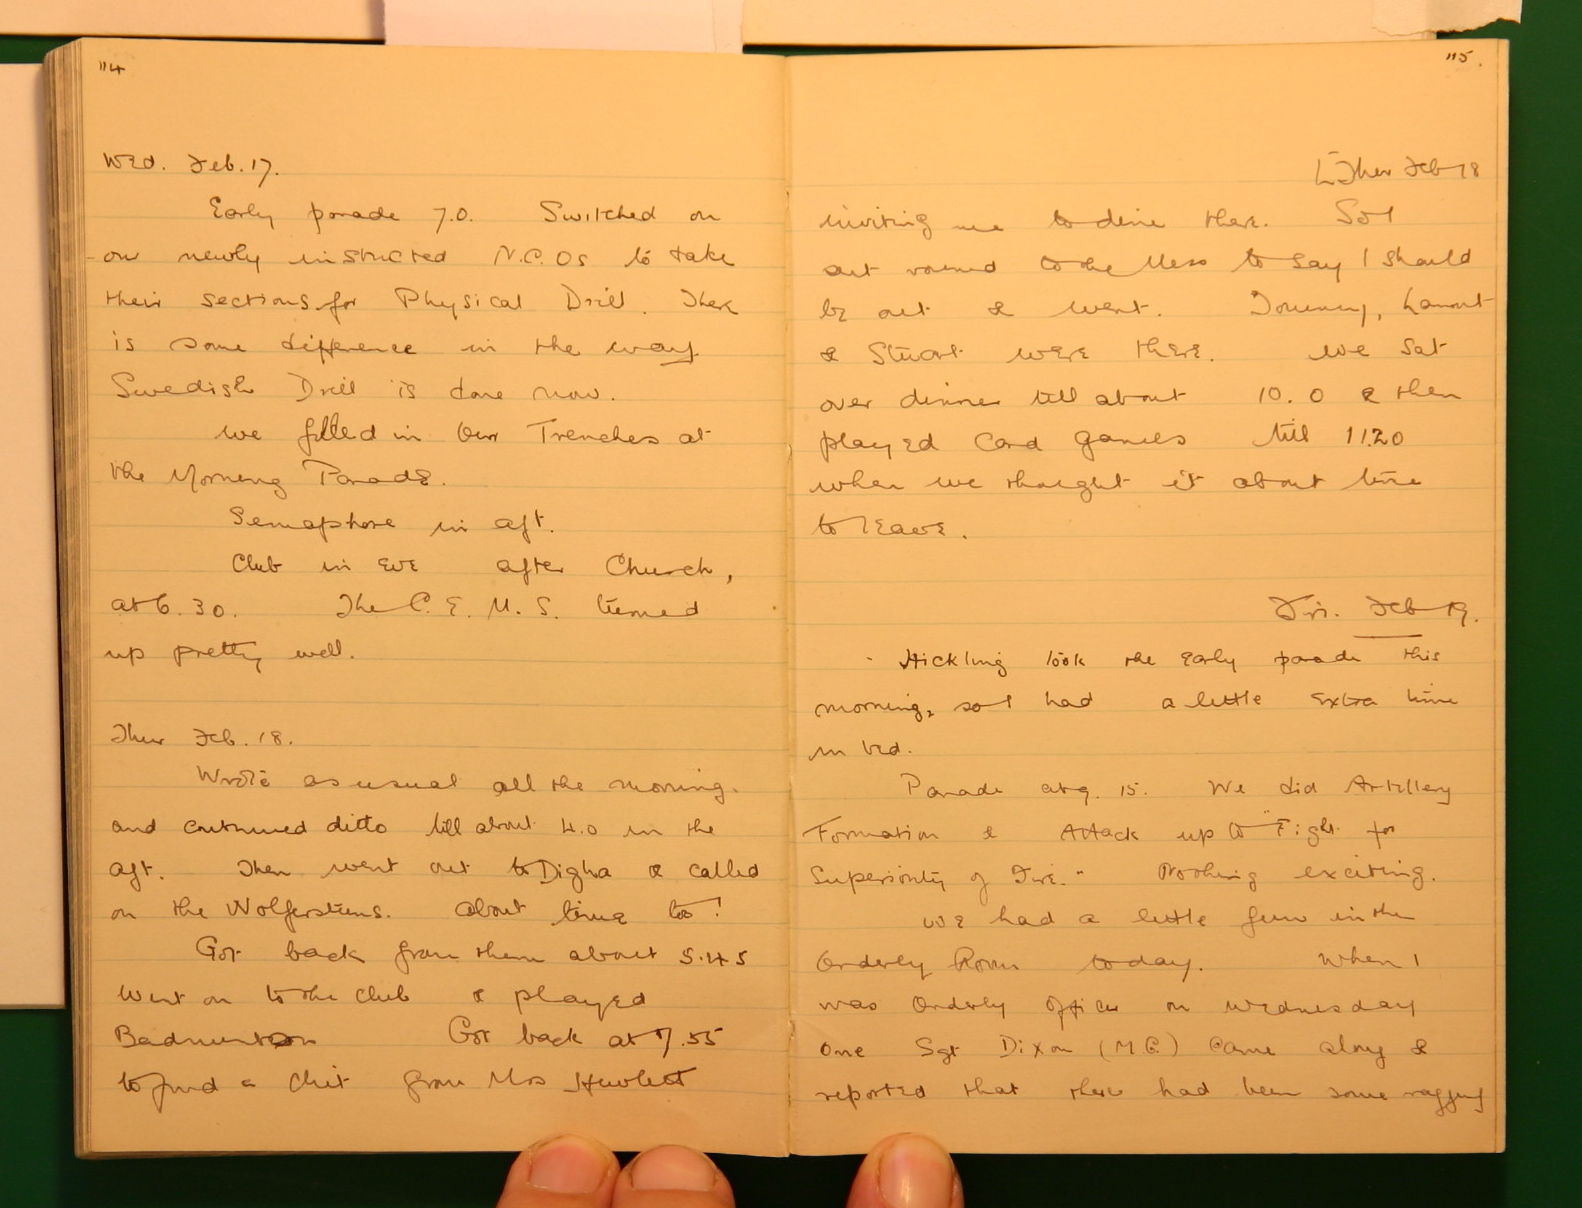 114
Wed. Feb. 17.
Early parade 7.0. Switched on
our newly instructed N.C.Os to take
their sections for Physical Drill. There
is some difference in the way
Swedish Drill is done now.
We filled in our Trenches at
the Morning Parade.
Semaphore in aft.
Club in Eve after Church,
at 6.30. The C.E.M.S. turned
up pretty well.
Thur Feb. 18.
Wrote as usual all the morning.
and continued ditto till about 4.0 in the
aft. Then went out to Digha & called
on the Wolfersteins. About time too!
Got back from them about 5.45
Went on to the Club & played
Badminton Got back at 7.55
to find a chit from Mrs Hewlett
115.
[Thur Feb 18
inviting me to dine there. So I
sent round to the Mess to say I should
be out & went. Tommy, Lamont
& Stuart were there. We sat
over dinner till about 10.0 & then
played Card Games till 11.20
when we thought it about time
to leave.
Fri. Feb 19.
Hickling took the Early parade this
morning, so I had a little Extra time
in bed.
Parade at 9.15. We did Artillery
Formation & Attack up to "Fight for
Superiority of Fire." Nothing exciting.
We had a little fun in the
Orderly Room today. When I
was Orderly Officer on Wednesday
one Sgt Dixon (M.C.) came along &
reported that there had been some ragging